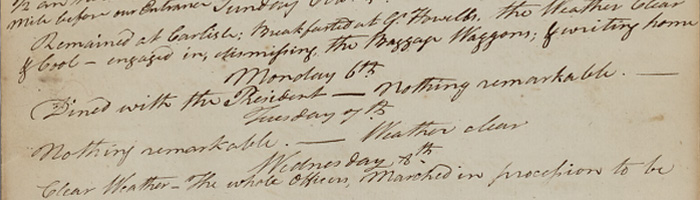 mile before our Entrance Sunday
Remained at Carlisle; Breakfasted at Gl. Howells. the Weather Clear
& Cool – engaged in, dismissing, the Baggage Waggons; & writing home
Monday 6th
Dined with the President — Nothing remarkable. —
Tuesday 7th
Nothing remarkable. — Weather clear
Wednesday, 8th
Clear Weather – The whole Officers, Marched in procession to be